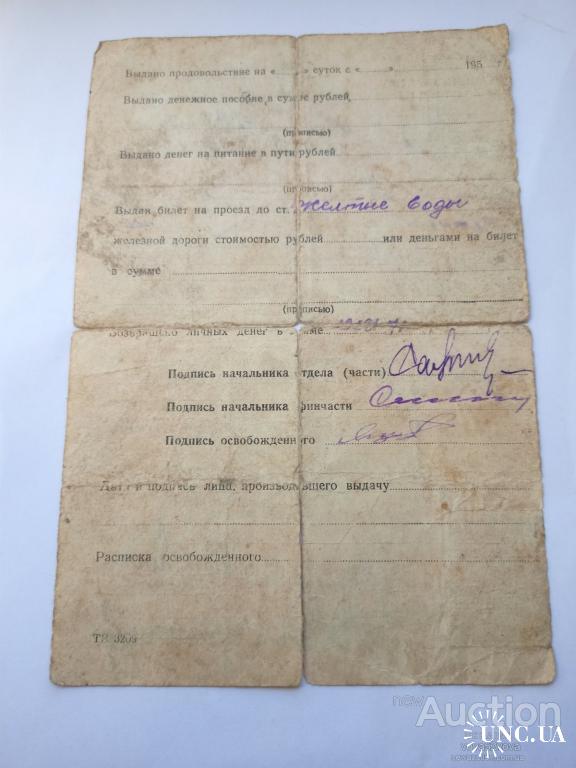 Выдано продовольствие на «......» суток с «......» 195
Выдано денежное пособие в сумме рублей
(прописью)
Выдано денег на питание в пути рублей
(прописью)
Выдан билет на проезд до ст. Желтые Воды
железной дороги стоимостью рублей ............ или деньгами на билет
в сумме
(прописью)
Возвращено личных денег в сумме
Подпись начальника отдела (части)
Подпись начальника финчасти
Подпись освобожденного
Дата и подпись лица, производившего выдачу
Расписка освобожденного
new
Auction
UNC.UA